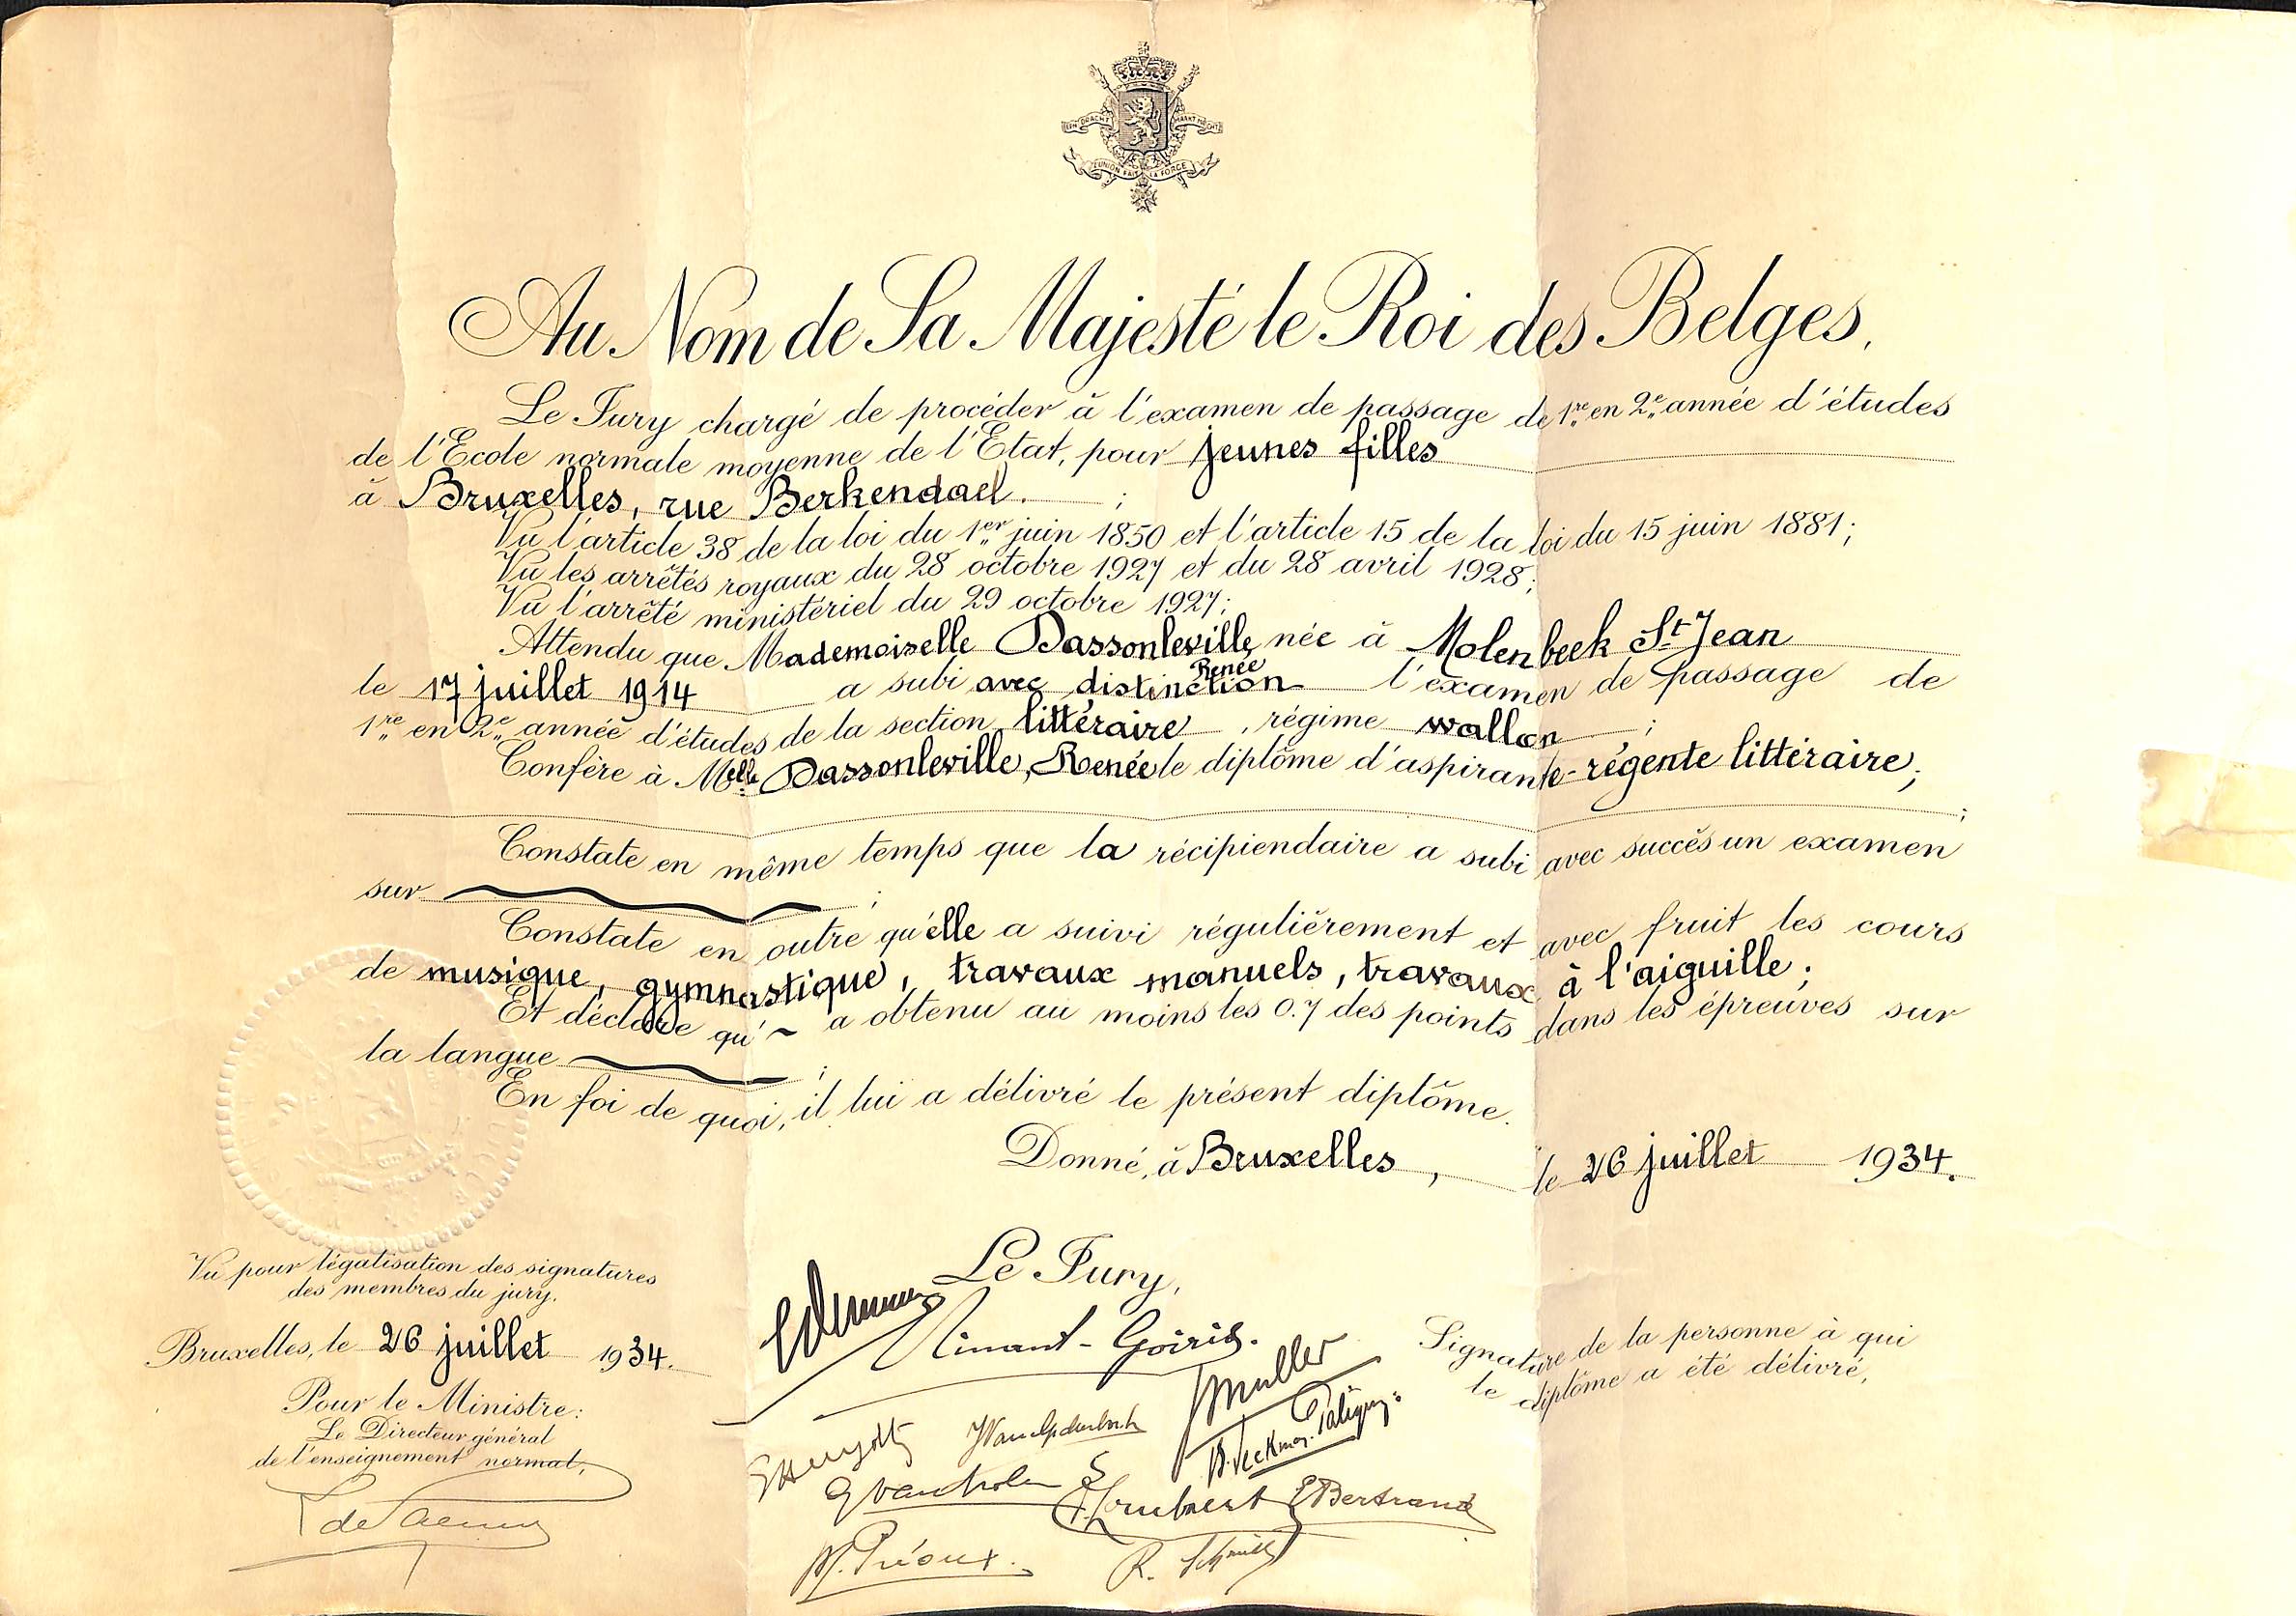 EENDRACHT MAAKT MACHT
L'UNION FAIT LA FORCE
Au Nom de Sa Majesté le Roi des Belges,
Le Jury chargé de procéder à l'examen de passage de 1re en 2e année d'études
de l'Ecole normale moyenne de l'Etat, pour jeunes filles
à Bruxelles, rue Berkendael. ;
Vu l'article 38 de la loi du 1er juin 1850 et l'article 15 de la loi du 15 juin 1881;
Vu les arrêtés royaux du 28 octobre 1927 et du 28 avril 1928;
Vu l'arrêté ministériel du 29 octobre 1927;
Attendu que Mademoiselle Dassonleville, née à Molenbeek St Jean
Renée
le 17 juillet 1914 a subi avec distinction l'examen de passage de
1re en 2e année d'études de la section littéraire, régime wallon ;
Confère à Melle Dassonleville, Renée le diplôme d'aspirante-régente littéraire;
;
Constate en même temps que la récipiendaire a subi avec succès un examen
sur ;
Constate en outre qu'elle a suivi régulièrement et avec fruit les cours
de musique, gymnastique, travaux manuels, travaux à l'aiguille;
Et déclare qu'~ a obtenu au moins les 0.7 des points dans les épreuves sur
la langue ;
En foi de quoi, il lui a délivré le présent diplôme.
Donné, à Bruxelles, le 26 juillet 1934.
Le Jury,
Vu pour légalisation des signatures
des membres du jury.
Bruxelles, le 26 juillet 1934.
Pour le Ministre:
Le Directeur général
de l'enseignement normal,
Signature de la personne à qui
le diplôme a été délivré,
Minant-Goiris.
Muller
E Bertrand
M. Préoux.